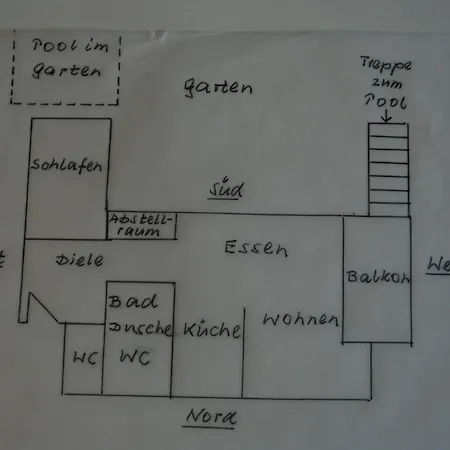 Pool im
garten
garten
Treppe
zum
Pool
Schlafen
Süd
Abstell-
raum
Essen
t
Diele
Balkon
We
Bad
Dusche
WC
Küche
Wohnen
WC
Nord